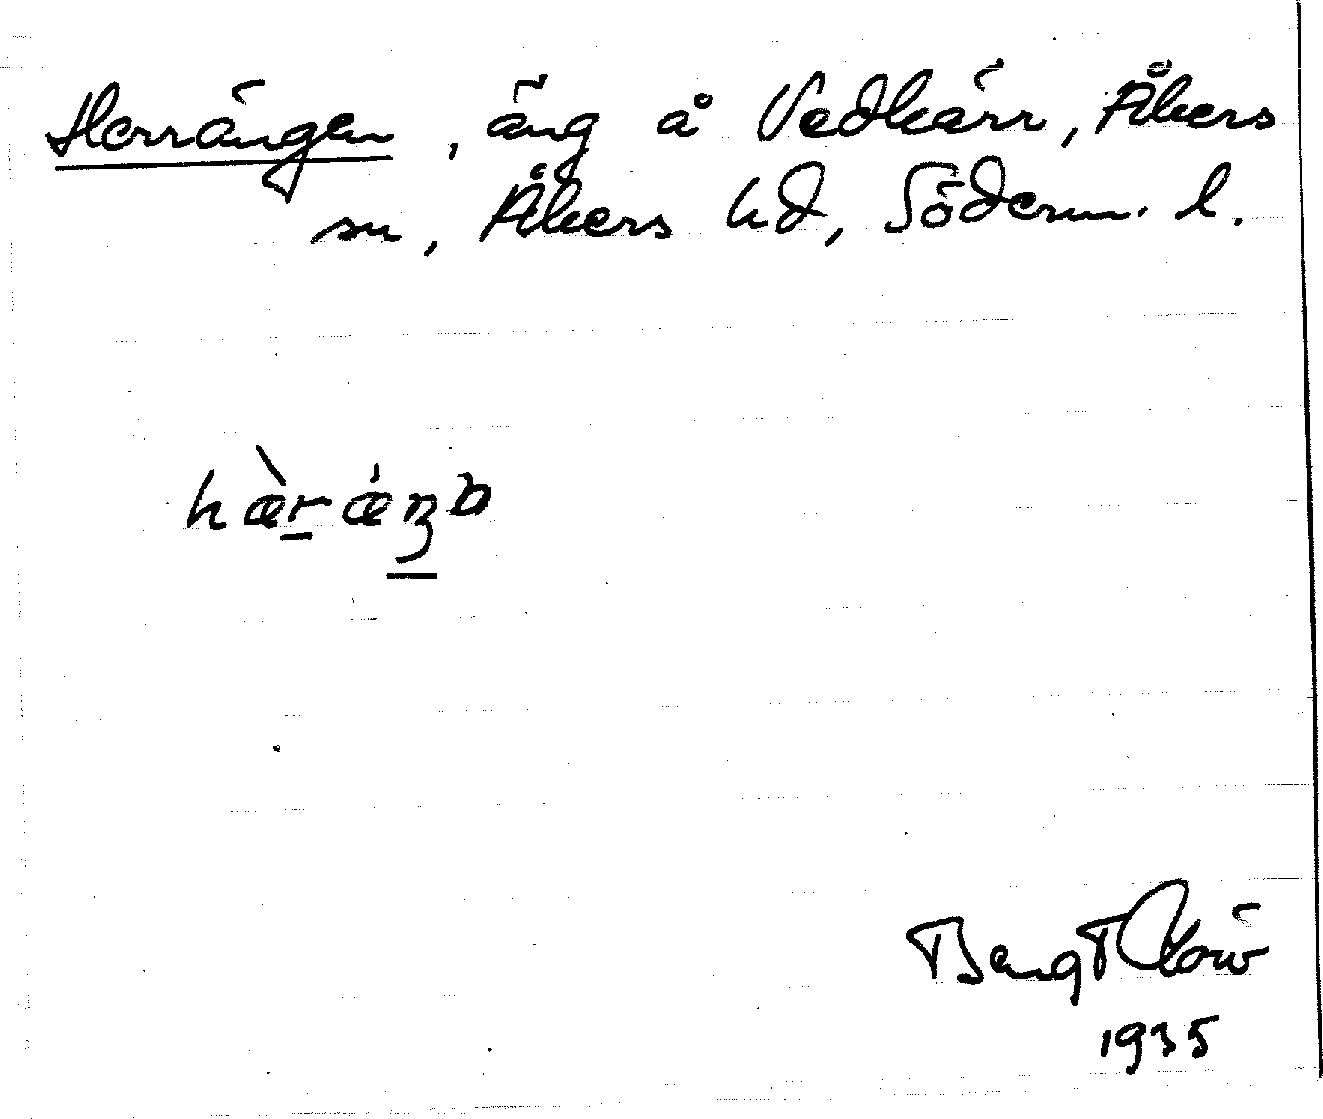 Herrängen, äng å Vedkärr, Åkers
sn, Åkers hd, Söderm. l.
hæ̀rǽŋƅ
Bengt
1935